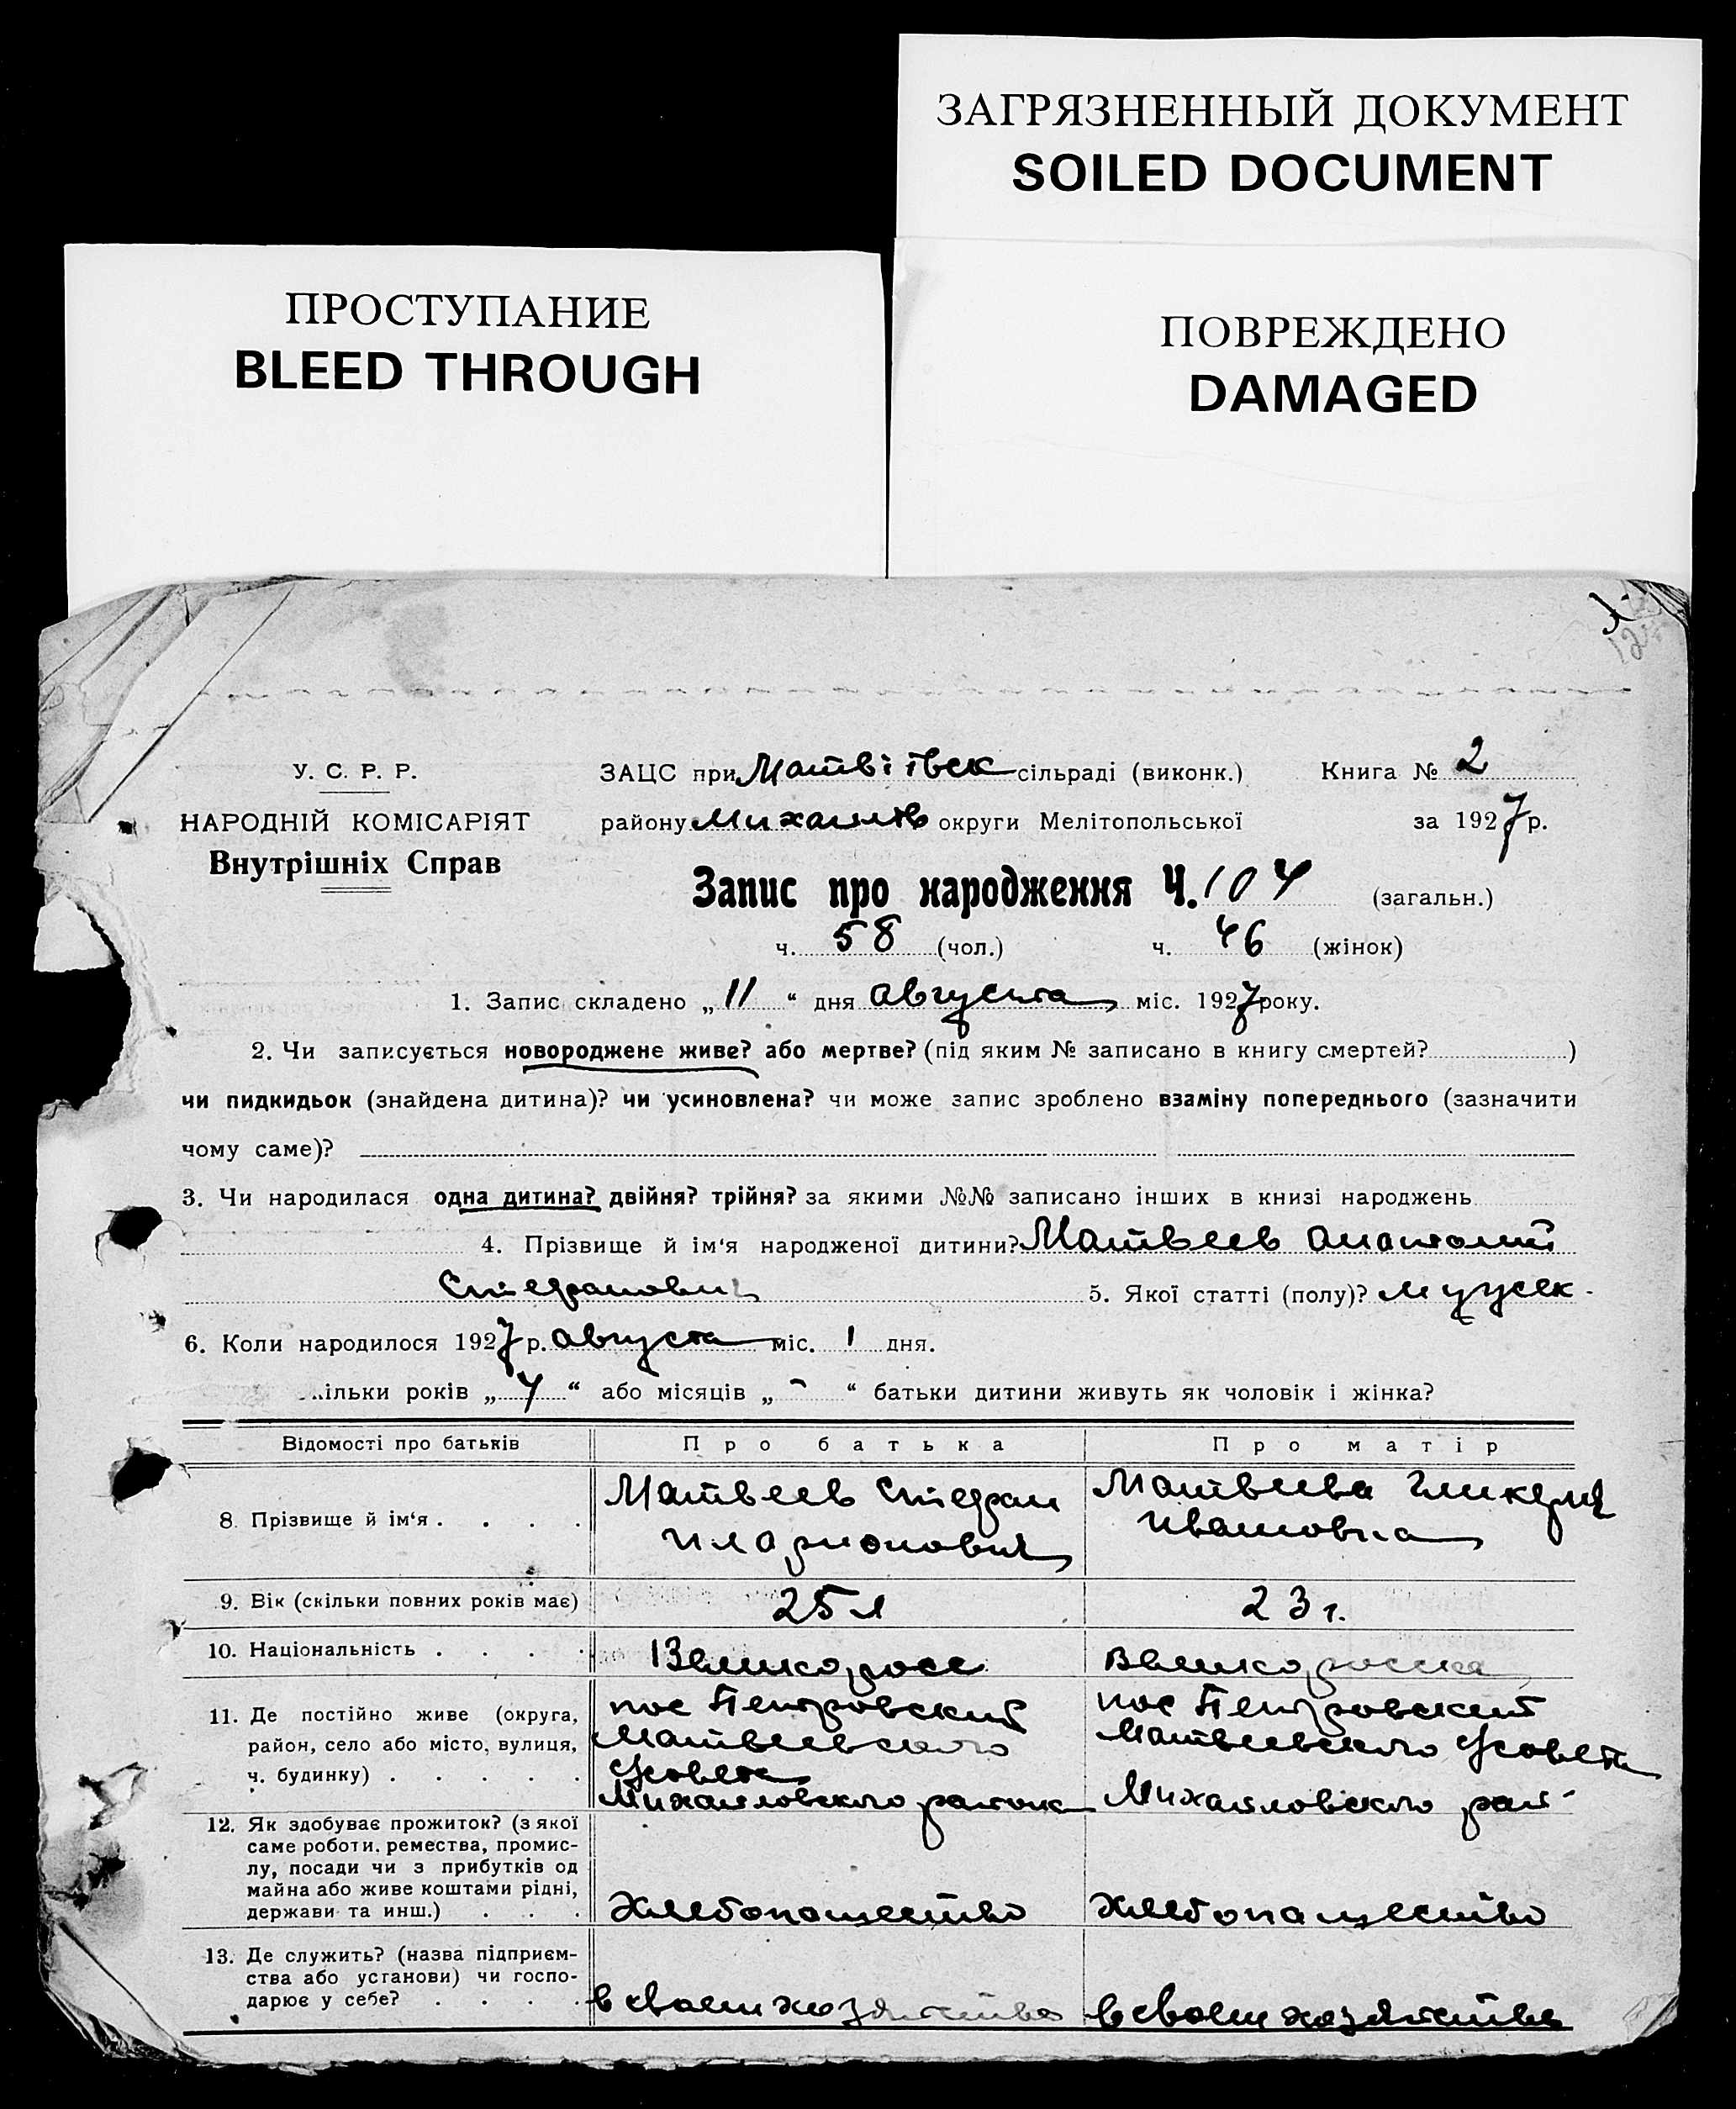 ЗАГРЯЗНЕННЫЙ ДОКУМЕНТ
SOILED DOCUMENT
ПРОСТУПАНИЕ
BLEED THROUGH
ПОВРЕЖДЕНО
DAMAGED
У. С. Р. Р.
НАРОДНІЙ КОМІСАРІЯТ
Внутрішніх Справ
ЗАЦС при Матвіївск сільраді (виконк.) Книга № 2
району Михайлів округи Мелітопольської за 1927 р.
Запис про народження Ч. 104 (загальн.)
ч. 58 (чол.) ч. 46 (жінок)
1. Запис складено „ 11 “ дня Августа міс. 1927 року.
2. Чи записується новороджене живе? або мертве? (під яким № записано в книгу смертей? )
чи пидкидьок (знайдена дитина)? чи усиновлена? чи може запис зроблено взаміну попереднього (зазначити
чому саме)?
3. Чи народилася одна дитина? двійня? трійня? за якими №№ записано інших в книзі народжень
4. Прізвище й ім'я народженої дитини? Матвеев Анатолий
Стефанович 5. Якої статті (полу)? мужск-
6. Коли народилося 1927 р. Августа міс. 1 дня.
ільки років „ 4 “ або місяців „ - “ батьки дитини живуть як чоловік і жінка?
Відомості про батьків Про батька Про матір
8. Прізвище й ім'я . . . . Матвеев Стефан Матвеева Гликерия
Иларионович Ивановна
9. Вік (скільки повних років має) 25 л 23 г.
10. Національність . . . . Великоросс Великоросска
11. Де постійно живе (округа, пос Петровский пос Петровский
район, село або місто, вулиця, Матвеевского Матвеевского Ссовета
ч. будинку) . . . . . Ссовета
Михайловского района Михайловского рай-
12. Як здобуває прожиток? (з якої
саме роботи, ремества, промис-
лу, посади чи з прибутків од
майна або живе коштами рідні,
держави та инш.) . . . Хлебопашество Хлебопашество
13. Де служить? (назва підприєм-
ства або установи) чи госпо-
дарює у себе? . . . . в своем хозяйстве в своем хозяйстве